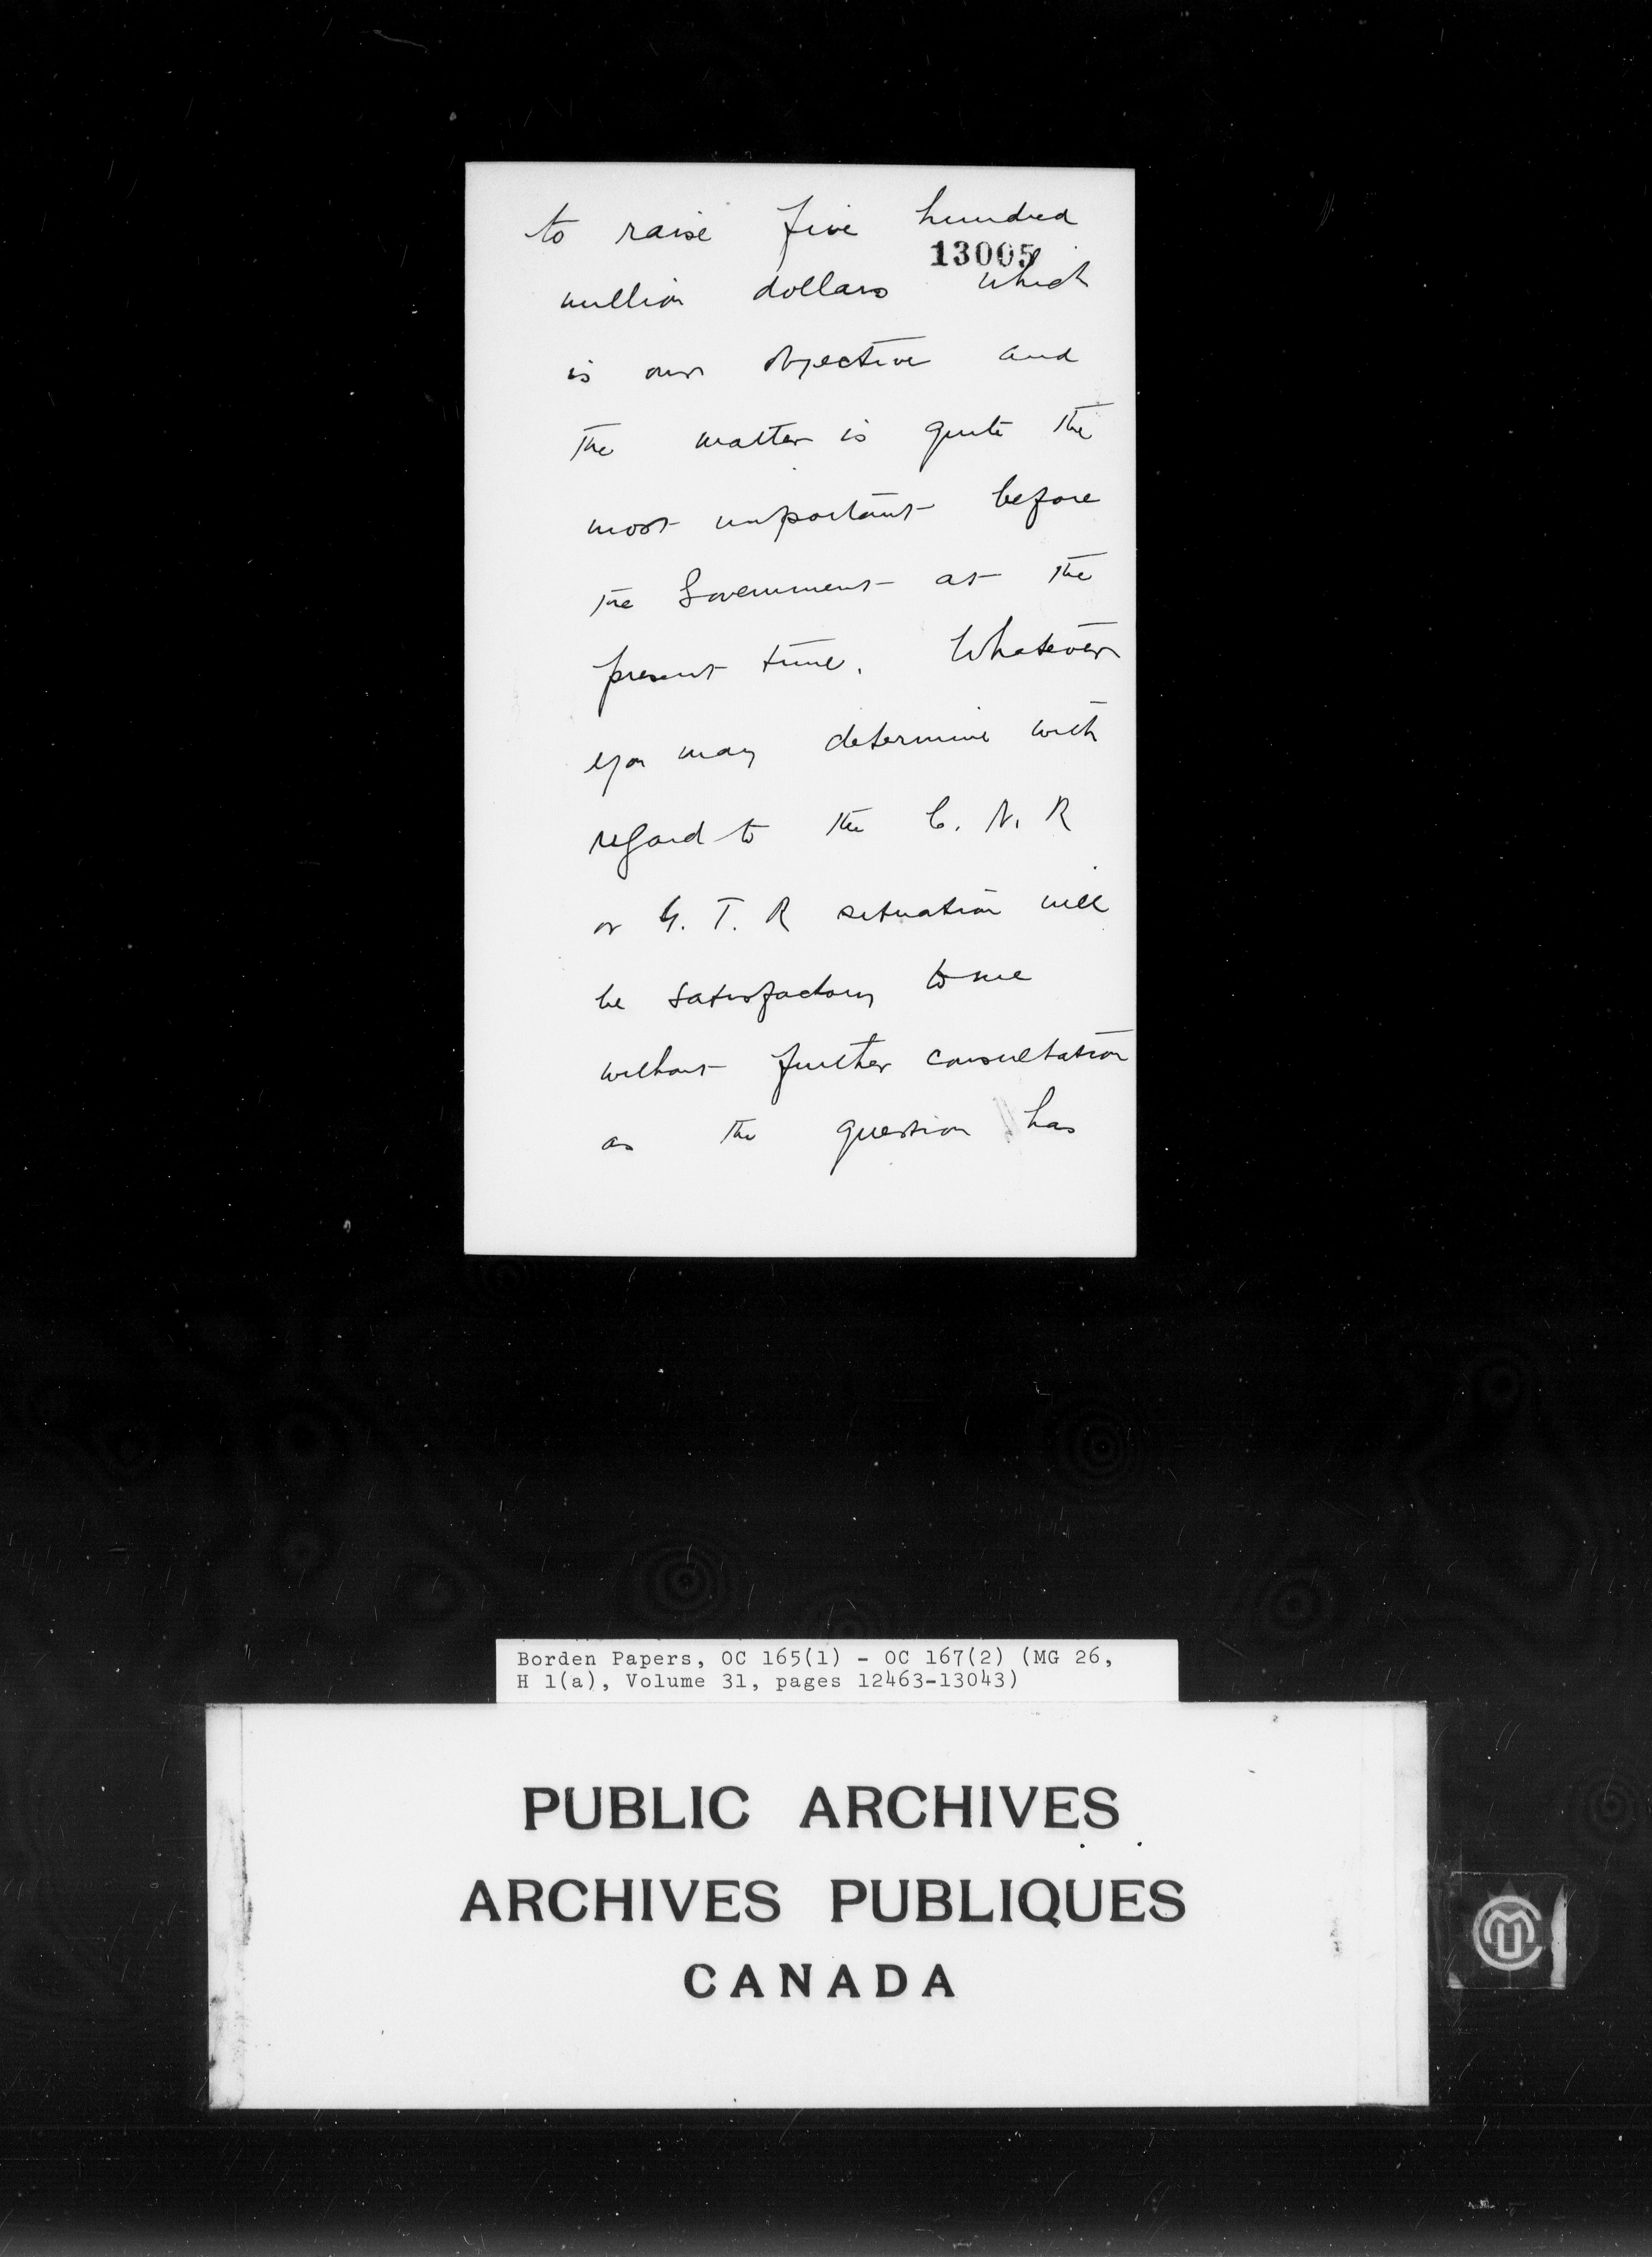 to raise five hundred
13005
million dollars which
is our objective and
the matter is quite the
most important before
the Government at the
present time. Whatever
you may determine with
regard to the C. N. R
or G. T. R situation will
be satisfactory to me
without further consultation
as the question has
Borden Papers, OC 165(1) - OC 167(2) (MG 26,
H 1(a), Volume 31, pages 12463-13043)
PUBLIC ARCHIVES
ARCHIVES PUBLIQUES
CANADA